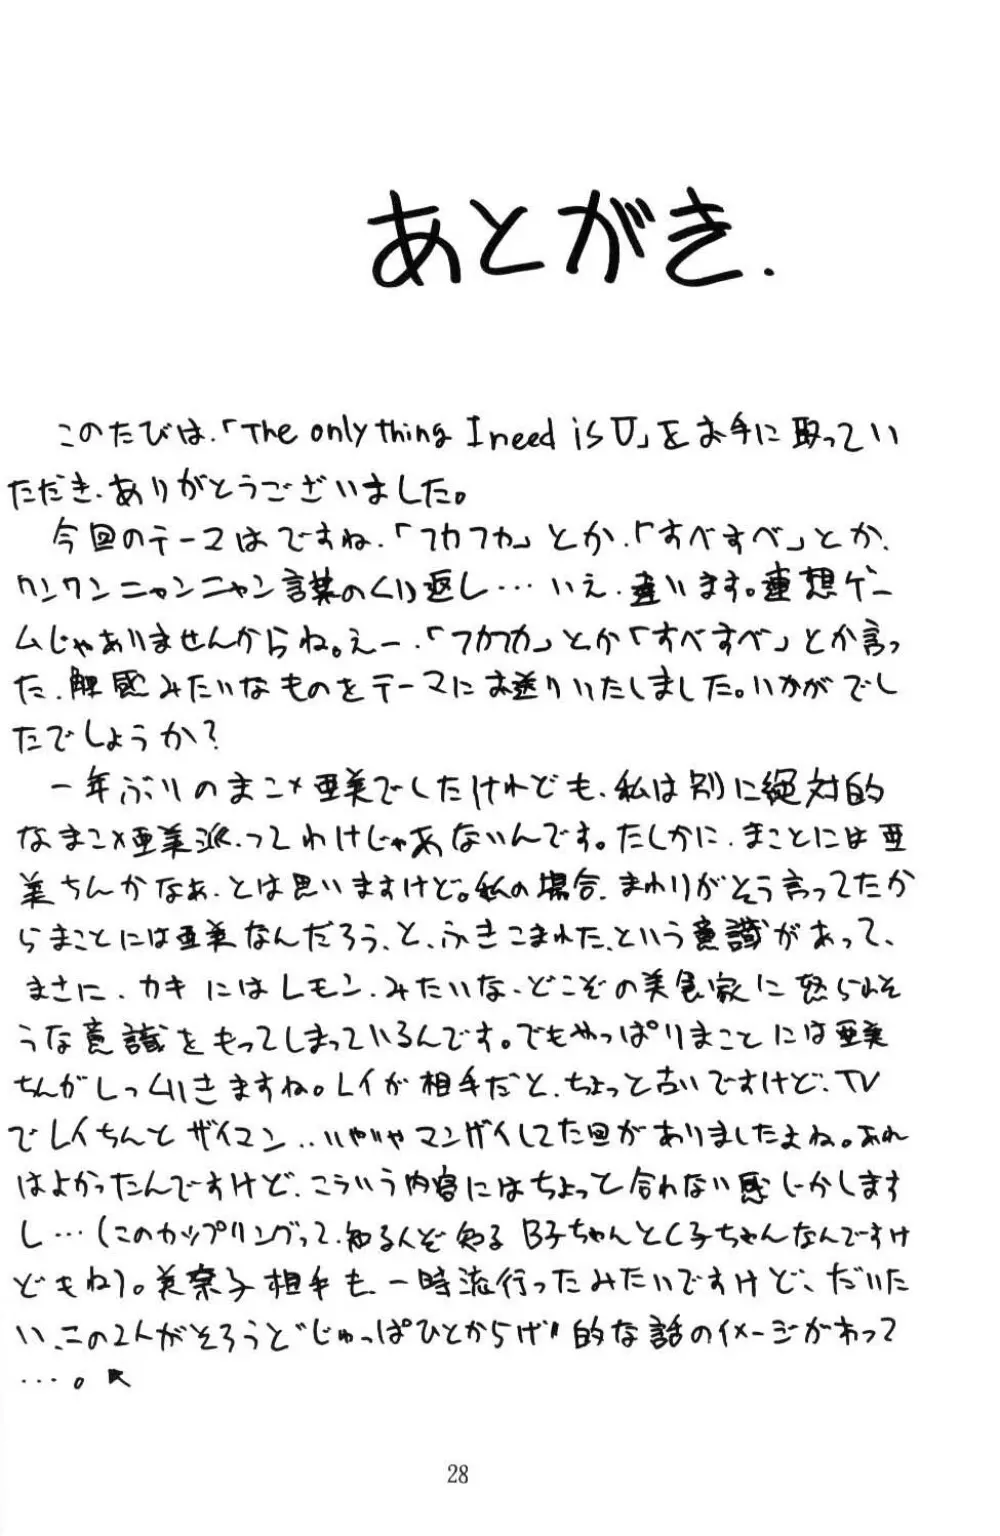 あとがき.
このたびは、「The only thing I need is U」をお手に取ってい
ただき、ありがとうございました。
今回のテーマはですね、「フカフカ」とか、「すべすべ」とか、
ワンワンニャンニャン言葉のくり返し…いえ、違います。連想ゲー
ムじゃありませんからね。えー、「フカフカ」とか「すべすべ」とか言っ
た、触感みたいなものをテーマにお送りいたしました。いかがでし
たでしょうか?
一年ぶりのまこ×亜美でしたけれども、私は別に絶対的
なまこ×亜美派、ってわけじゃあないんです。たしかに、まことには亜
美ちんかなぁ、とは思いますけど。私の場合、まわりがそう言ってたか
らまことには亜美なんだろう、と、ふきこまれた、という意識があって、
まさに、カキにはレモン、みたいな、どこぞの美食家に怒られそ
うな意識をもってしまっているんです。でもやっぱりまことには亜美
ちんがしっくりきますね。レイが相手だと、ちょっと古いですけど、TV
でレイちんとザイマン..いやいやマンザイしてた回がありましたよね。あれ
はよかったんですけど、こういう内容にはちょっと合わない感じがします
し…(このカップリングって、知る人ぞ知るB子ちゃんとC子ちゃんなんですけ
どもね)。美奈子相手も、一時流行ったみたいですけど、だいた
い、この2人がそろうと"じゅっぱひとからげ"的な話のイメージがあって
…。
28